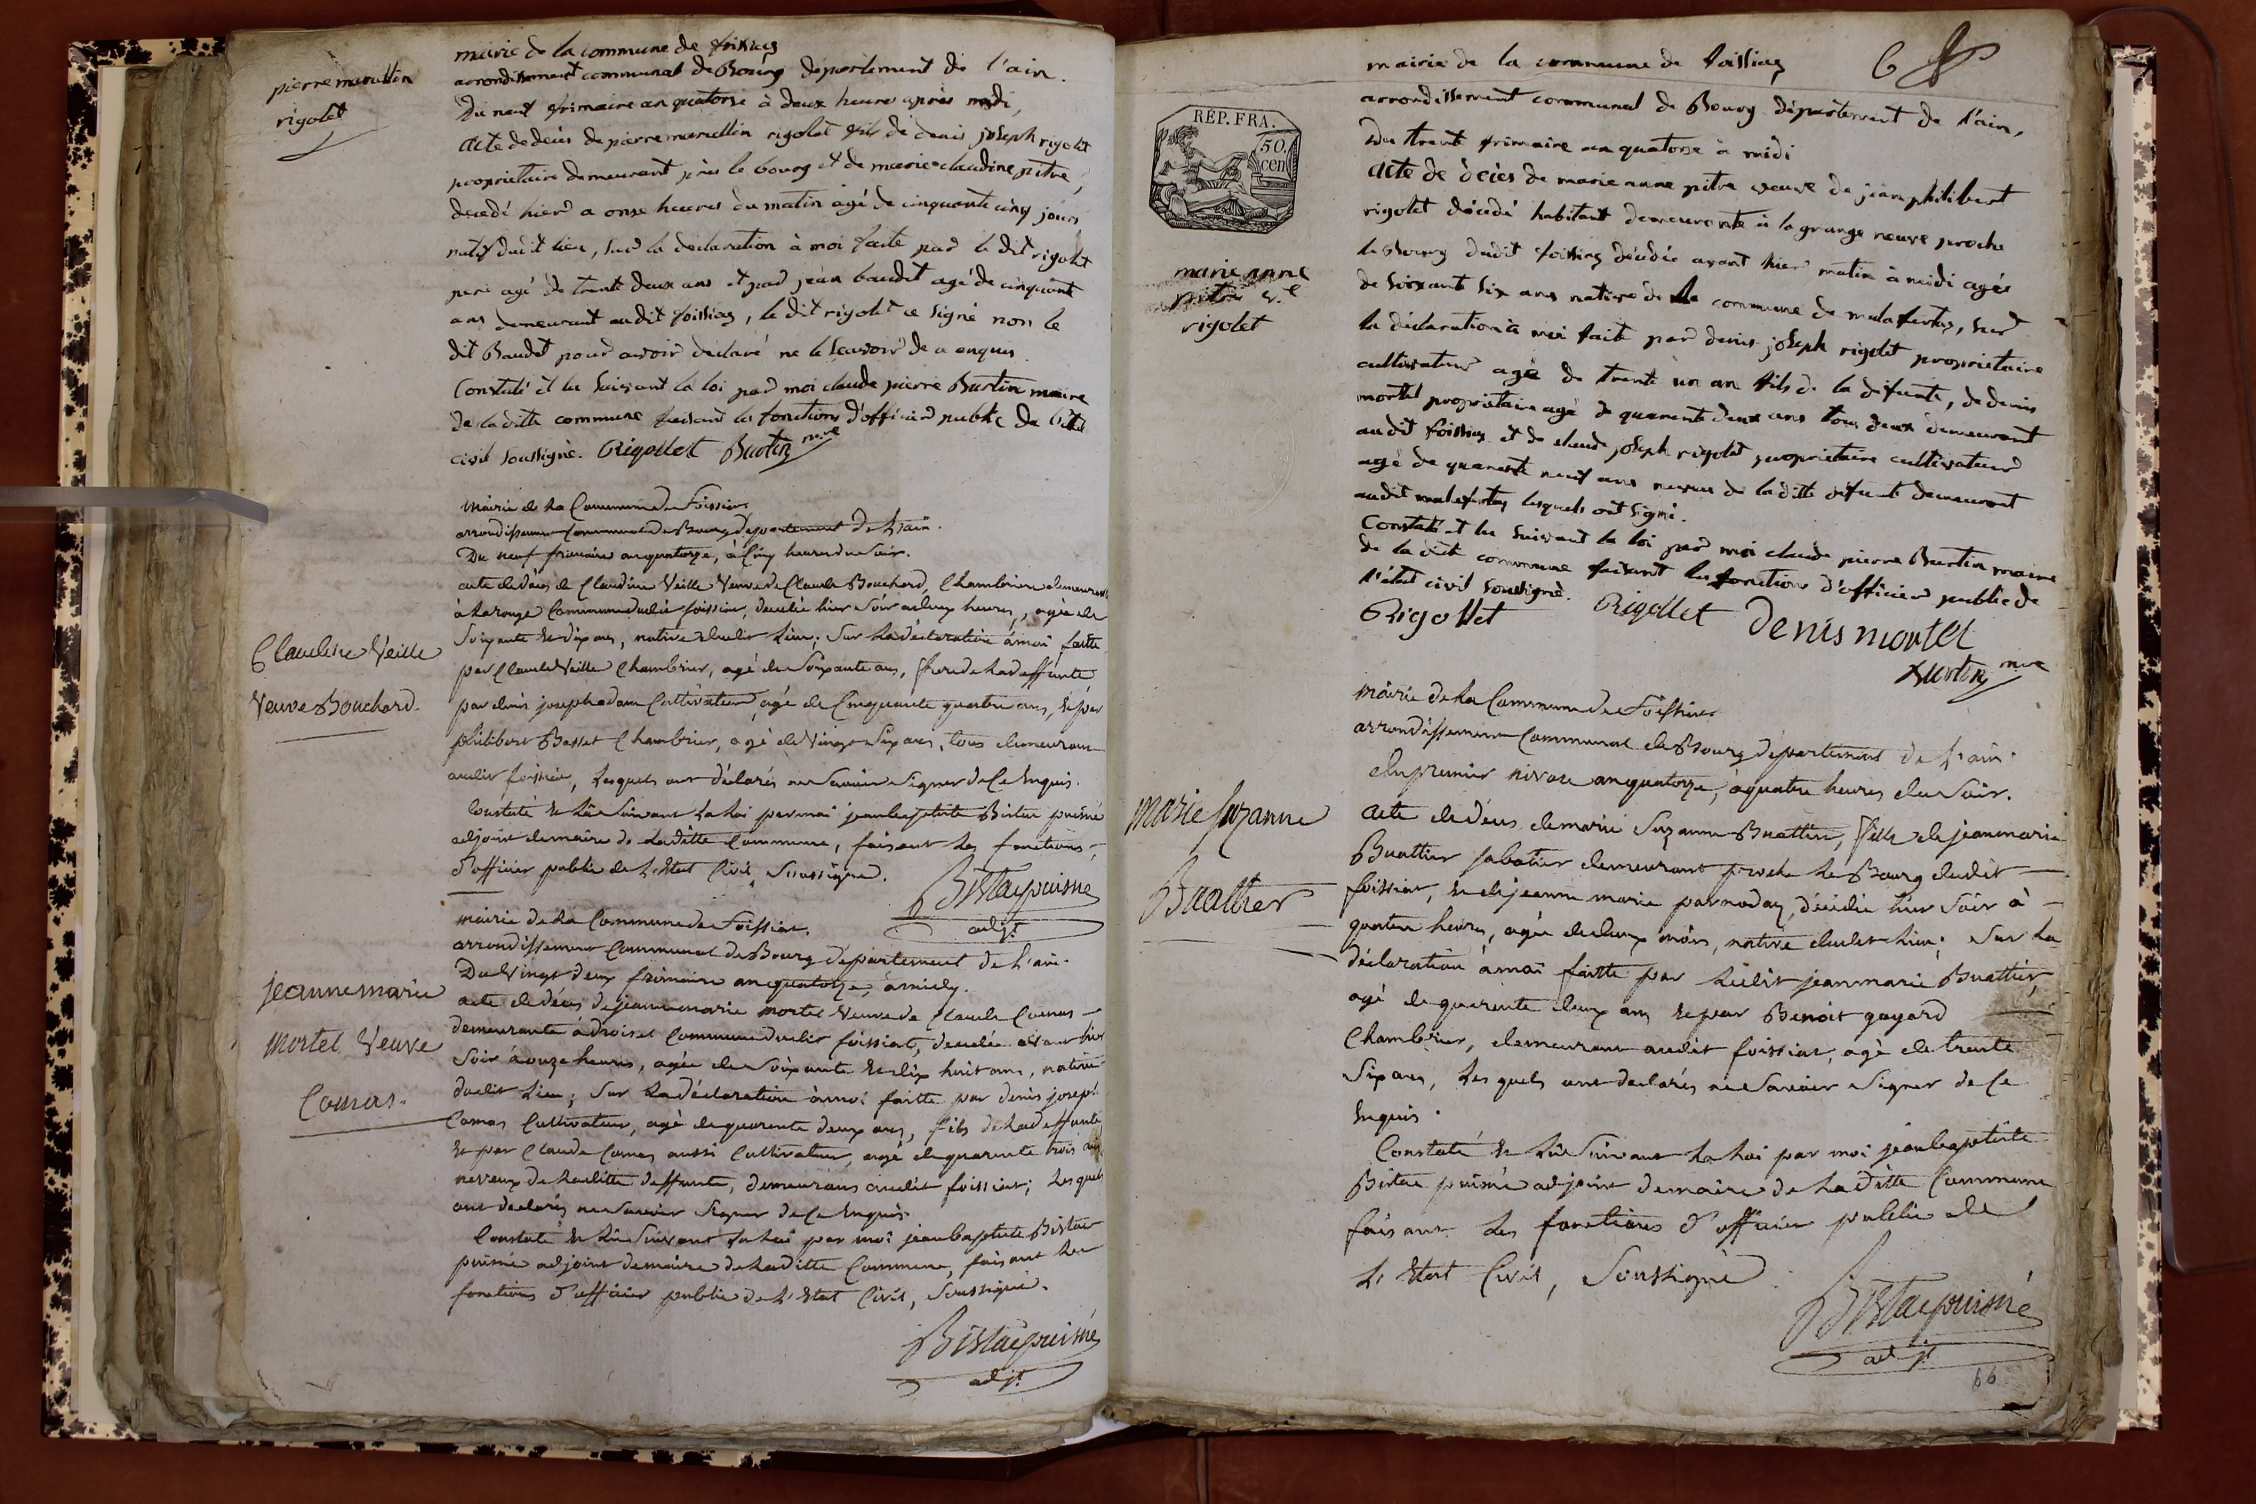 pierre marcellin
rigolet
mairie de la commune de foissias
arrondissement communal de Bourg département de l'ain.
Du neuf frimaire an quatorze à deux heures après midi,
acte de décès de pierre marcellin rigolet fils de denis joseph rigolet
propriétaire demeurant près le bourg et de marie claudine pitre,
décédé hier a onse heures du matin âgé de cinquante cinq jours
natif dudit lieu, sur la déclaration à moi faite par le dit rigolet
pere agé de trente deux ans et par jean baudet agé de cinquante
ans demeurant audit foissias, le dit rigolet a signé non le
dit Baudet pour avoir déclaré ne le scavoir de a enquis.
Constaté et lu suivant la loi par moi claude pierre Burtin maire
de la ditte commune faisant les fonctions d'officier public de l'état
civil soussigné. Rigollet Burtin mre
Claudine Veille
Veuve Bouchard.
Mairie de La Commune de Foissiat
arrondissement Communal de Bourg département de L'ain.
Du neuf frimaire an quatorze, à Cinq heures du Soir.
acte de décès de Claudine Veille Veuve de Claude Bouchard, Chambrier demeurant
à Commune dudit foissiat, decedée hier Soir a deux heures, agée de
Soixante et dix ans, native dudit Lieu; Sur La déclaration à moi faitte
par Claude Veille Chambrier, agé de Soixante ans, frere de La deffunte
par denis joseph adam Cultivateur, agé de Cinquante quatre ans, et par
philibert Basset Chambrier, agé de Vingt Six ans, tous demeurant
audit foissiat, Lesquels ont déclarés ne Savoir Signer de Ce Enquis.
Constaté et Lû Suivant La Loi par moi jean baptiste Bistac puisné
adjoint de maire de La ditte Commune, faisant Les fonctions,
d'officier public de L'Etat Civil, Soussigné.
Bistac puisné
adjt
jeanne marie
Mortel Veuve
Comas.
Mairie de La Commune de Foissiat.
arrondissement Communal de Bourg département de L'ain.
Du Vingt deux frimaire an quatorze, à midy.
acte de décès de jeanne marie mortel Veuve de Claude Comas
demeurante à Commune dudit foissiat, decedée avant hier
Soir à onze heures, agée de Soixante et dix huit ans, native
dudit Lieu; Sur La déclaration à moi faitte par denis joseph
Comas Cultivateur, agé de quarente deux ans, fils de La deffunte
et par Claude Comas aussi Cultivateur, agé de quarente trois ans
neveux de Laditte deffunte, demeurans audit foissiat; Lesquels
ont declarés ne Savoir Signer de Ce Enquis.
Constaté et Lû Suivant La Loi par moi jean baptiste Bistac
puisné adjoint de maire de La ditte Commune, faisant Les
fonctions d'officier public de L'Etat Civil, Soussigné.
Bistac puisné
adjt
6
REP. FRA.
50
cen
marie anne
pitre ve
rigolet
mairie de la commune de foissias
arrondissement communal de Bourg département de l'ain,
Du trente frimaire an quatorze à midi
acte de décès de marie anne pitre veuve de jean philibert
rigolet décédé habitant demeurante à la grange neuve proche
le Bourg dudit foissias décédée avant hier matin à midi agée
de soixante six ans native de la commune de malafretas, sur
la déclaration à moi faite par denis joseph rigolet proprietaire
cultivateur agé de trente un an fils de la defunte, de denis
mortel propriétaire agé de quarente deux ans tous deux demeurant
audit foissias et de claude joseph rigolet proprietaire cultivateur
agé de quarente neuf ans neveu de la ditte defunte demeurant
audit malafretas lesquels ont signé.
Constaté et lu suivant la loi par moi claude pierre Burtin maire
de la ditte commune faisant les fonctions d'officier public de
l'état civil soussigné.
Rigollet Rigollet Denis mortel
Burtin mre
Marie suzanne
Buathier
Mairie de La Commune de Foissiat.
arrondissement Communal de Bourg département de L'ain.
du premier nivose an quatorze, à quatre heures du Soir.
acte de décès de marie Suzanne Buathier, fille de jean marie
Buathier Sabotier demeurant proche Le Bourg dudit
foissiat, et de jeanne marie parnoday, décédée hier Soir à
quatre heures, agée de deux mois, native dudit Lieu; Sur La
déclaration à moi faitte par Ledit jean marie Buathier,
agé de quarente deux ans et par Benoit gayard
Chambrier, demeurant audit foissiat, agé de trente
Six ans, Lesquels ont declarés ne Savoir Signer de Ce
Enquis.
Constaté et Lû Suivant La Loi par moi jean baptiste
Bistac puisné adjoint de maire de La ditte Commune
faisant Les fonctions d'officier public de
L'Etat Civil, Soussigné
Bistac puisné
adjt
66